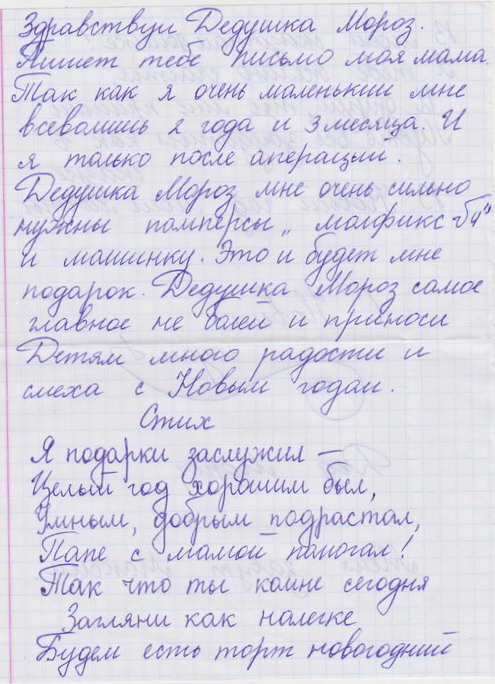 Здравствуй Дедушка Мороз.
Пишет тебе письмо моя мама.
Так как я очень маленький мне
всеволишь 2 года и 3 месяца. И
я только после аперации.
Дедушка Мороз мне очень сильно
нужны памперсы „молфикс-5ч"
и машинку. Это и будет мне
подарок. Дедушка Мороз самое
главное не болей и приноси
Детям много радости и
смеха с Новым годом.
Стих
Я подарки заслужил —
Целый год хорошим был,
Умным, добрым подрастал,
Папе с мамой помогал!
Так что ты комне сегодня
Загляни как налегке
Будем есть торт новогодний